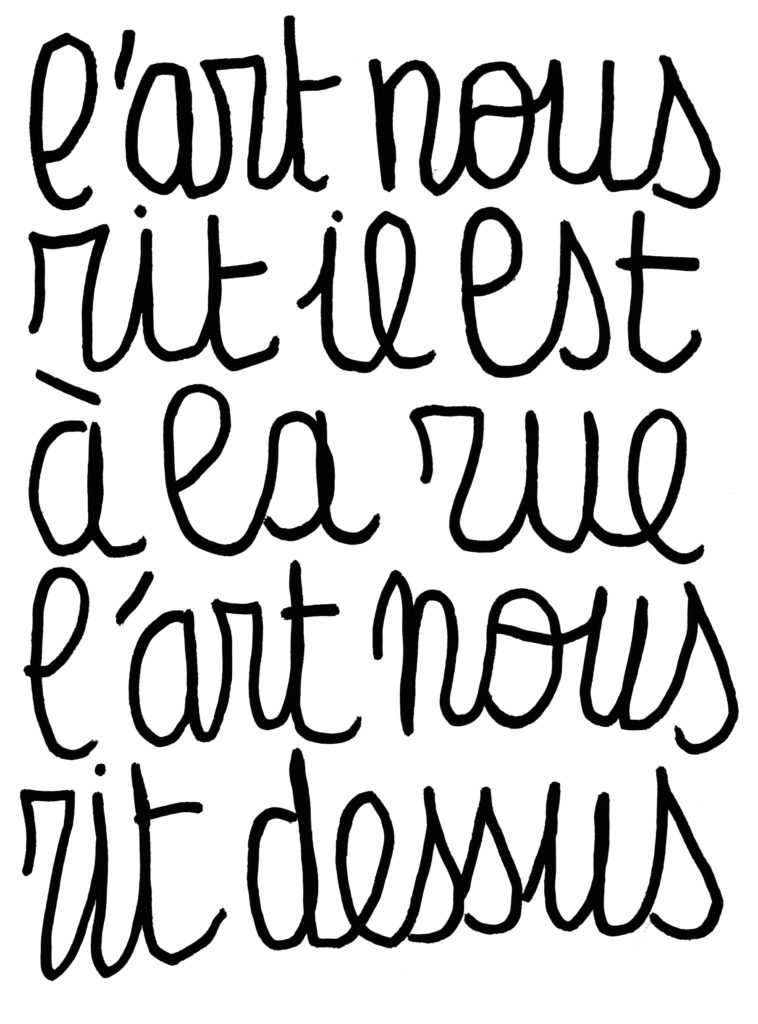 l'art nous
rit il est
à la rue
l'art nous
rit dessus